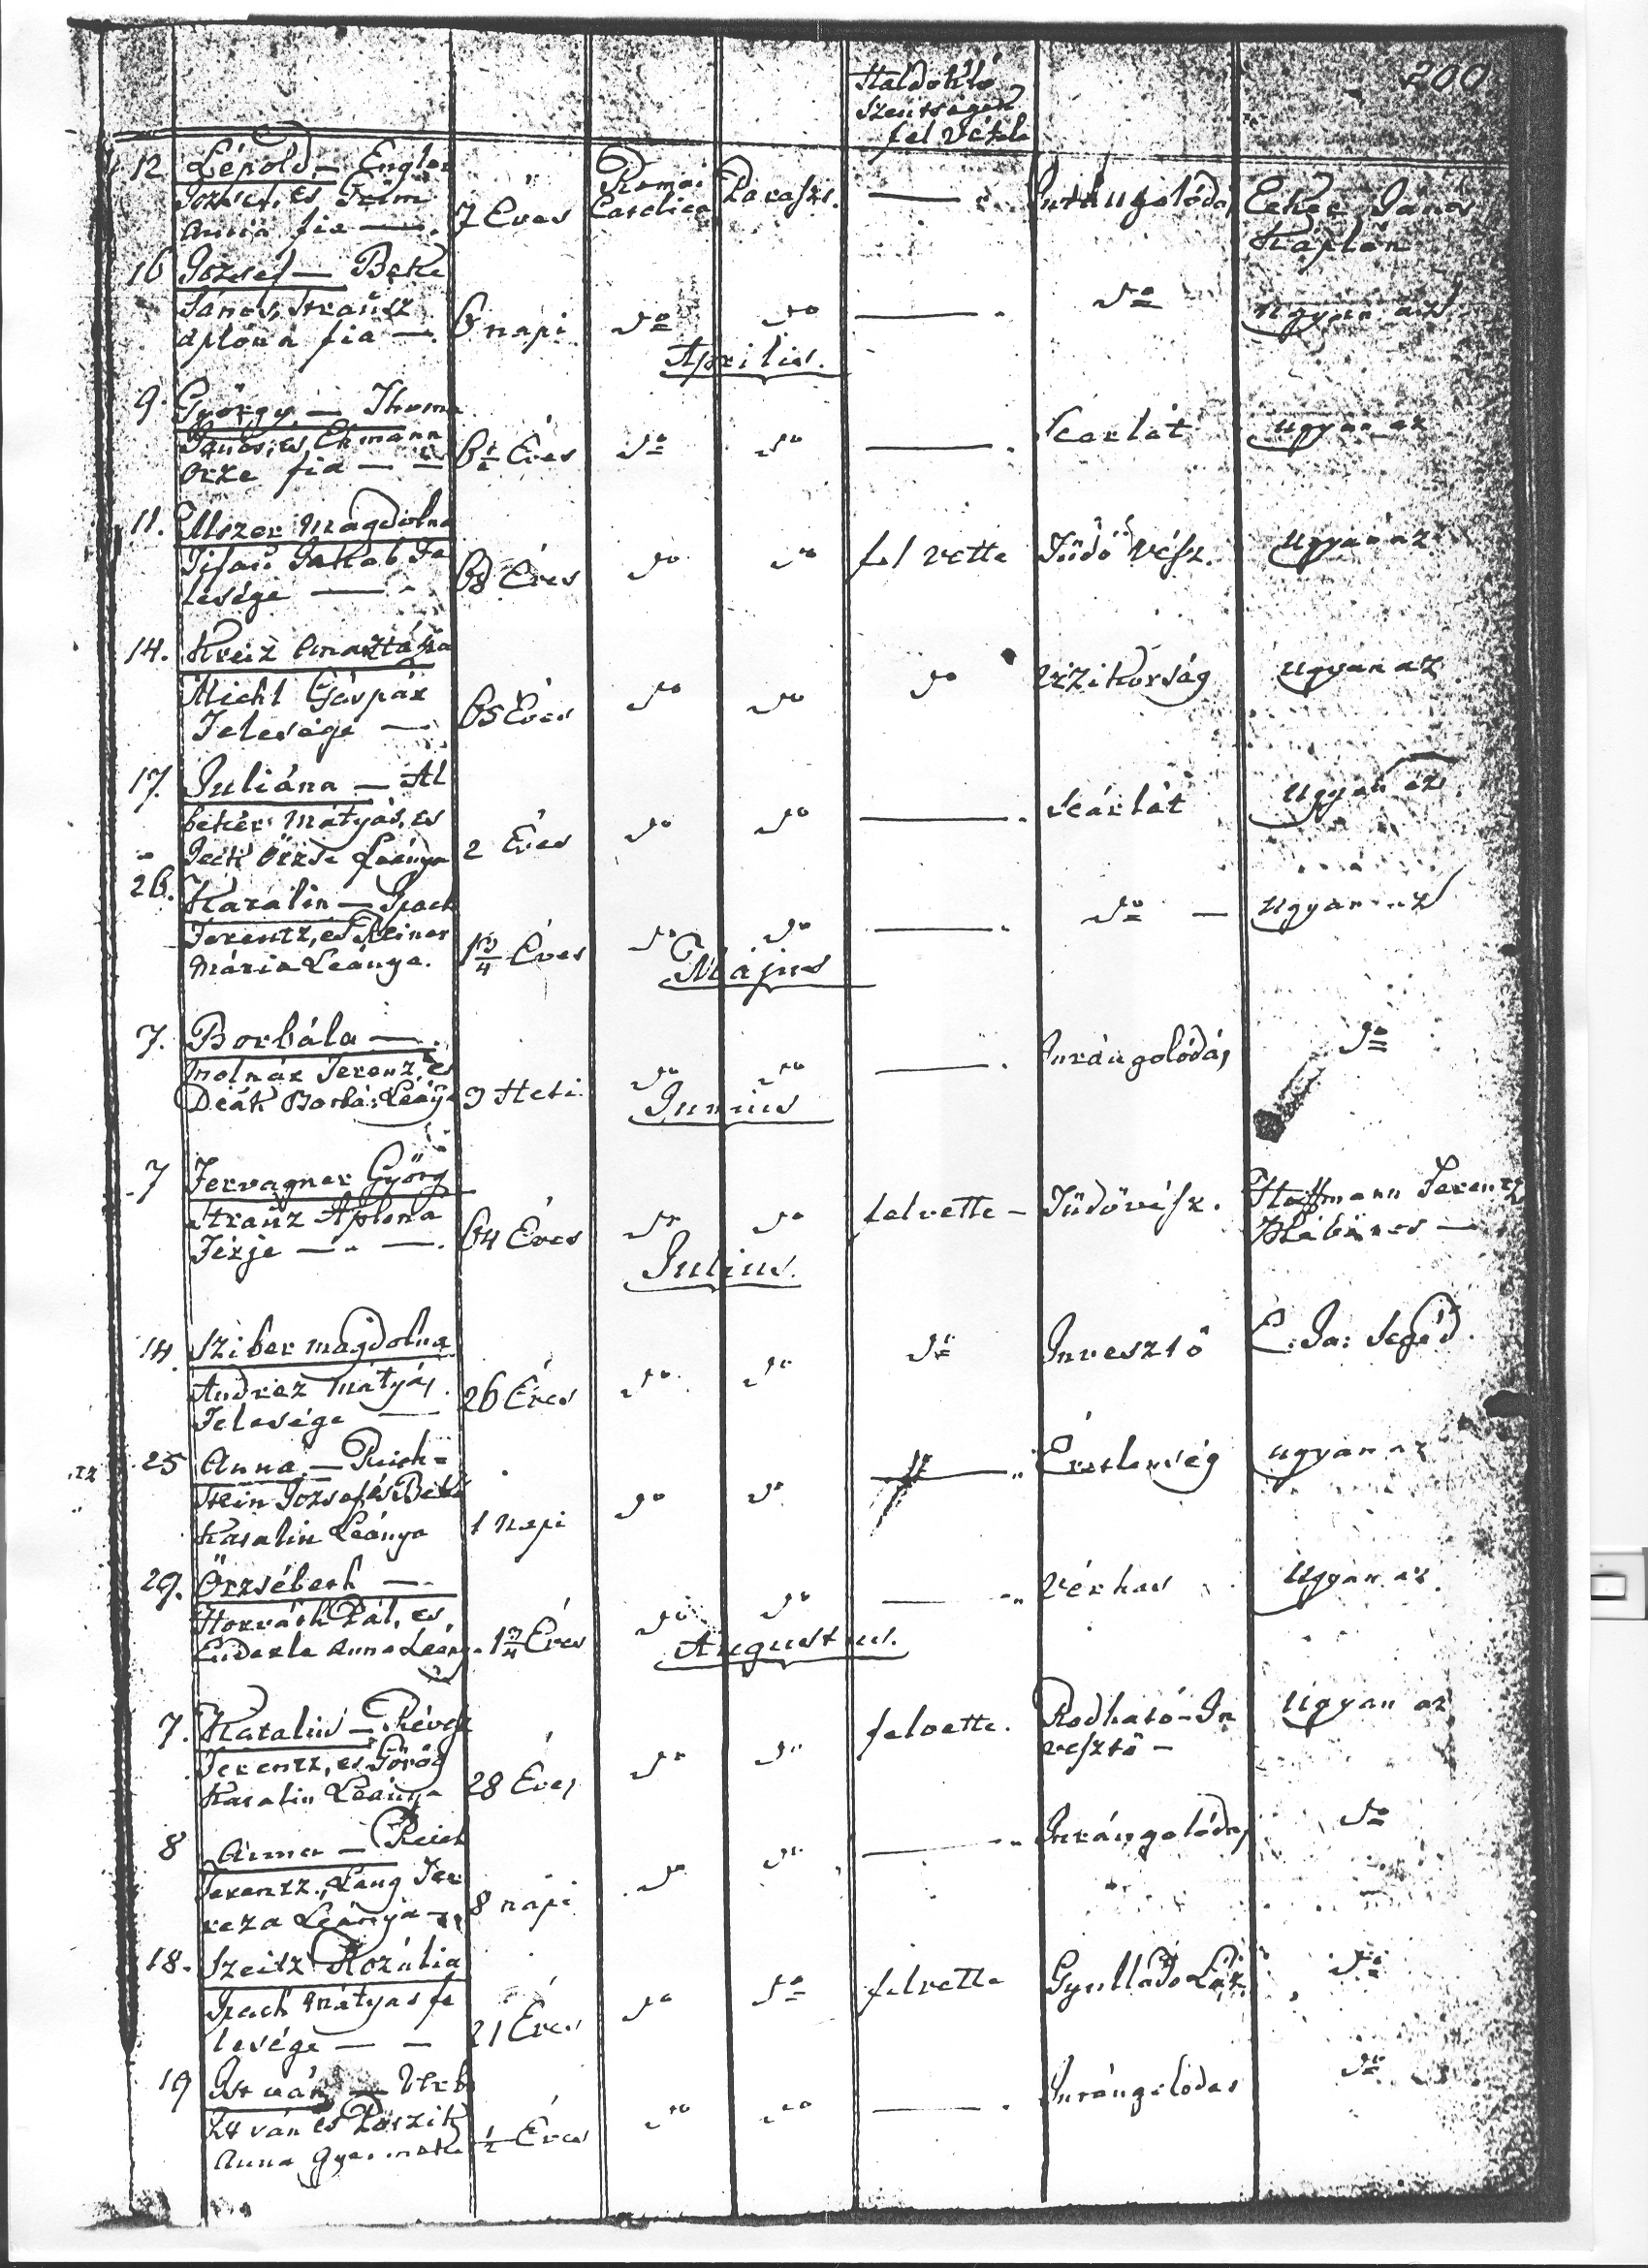 200
Haldokló
Szentségek
fel vétele
12 Lépold — Engler
József, és Grim
Anna fia — 7 Éves Romai Catolica Paraszt. — Inrángolódás Ecker János
Káplán
16 József — Beke
János, Strausz
Aplona fia — 6 napi do do — do ugyan az
Aprilis.
9. György — Thoma
János, és Ekmann
Örze fia — 6½ Éves do do — Scarlát ugyan az
11. Elszer Magdolna
Jakab Fe
lesége — 68 Éves do do fel vette Tüdő vész. ugyan az
14. Kreiz Anasztázia
Michl Gáspár
Felesége — 65 Éves do do do Vizikorság ugyan az
17. Juliána — Al
beker Mátyás, és
Örzse Leánya 2 Éves do do — scárlát ugyan az
26. Katalin — Spach
Ferentz, és Reiner
Mária Leánya. 1¾ Éves do do — do — ugyan az
Május
7. Borbála —
Molnár Ferenz, és
Deák Borbá: Leány 3 Heti do do — Inrángolódás do
Junius
7 Fervagner Györg
Strausz Aplona
Férje — 64 Éves do do felvette — Tüdővész. Hoffmann Ferentz
Plébános —
Julius.
14. Sziber Magdolna
Andrez Mátyás
Felesége — 26 Éves do do do Inresztő E: Ja: Segéd.
25 Anna — Reich=
stein József, és Beke
Katalin Leánya 1 napi do do — Éretlenség ugyan az
29. Örzsébeth —
Horváth Pál, és
Enderle Anna Leány. 1¾ Éves do do — Vérhas ugyan az
Augustus.
7. Katalin — Révész
Ferentz, és Török
Katalin Leánya 28 Éves do do felvette. Rodható-In
resztő — ugyan az
8 Anna — Reich
Ferentz, Lang Ter
reza Leánya 8 napi do do — Inrángolódás do
18. Szeitz Rozália
Spach Mátyás fe
lesége — 21 Éves do do felvette Gyulladó Láz do
19 István — Verb
István és Poszik
Anna Gyermeke ½ Éves do do — Inrángolodas do